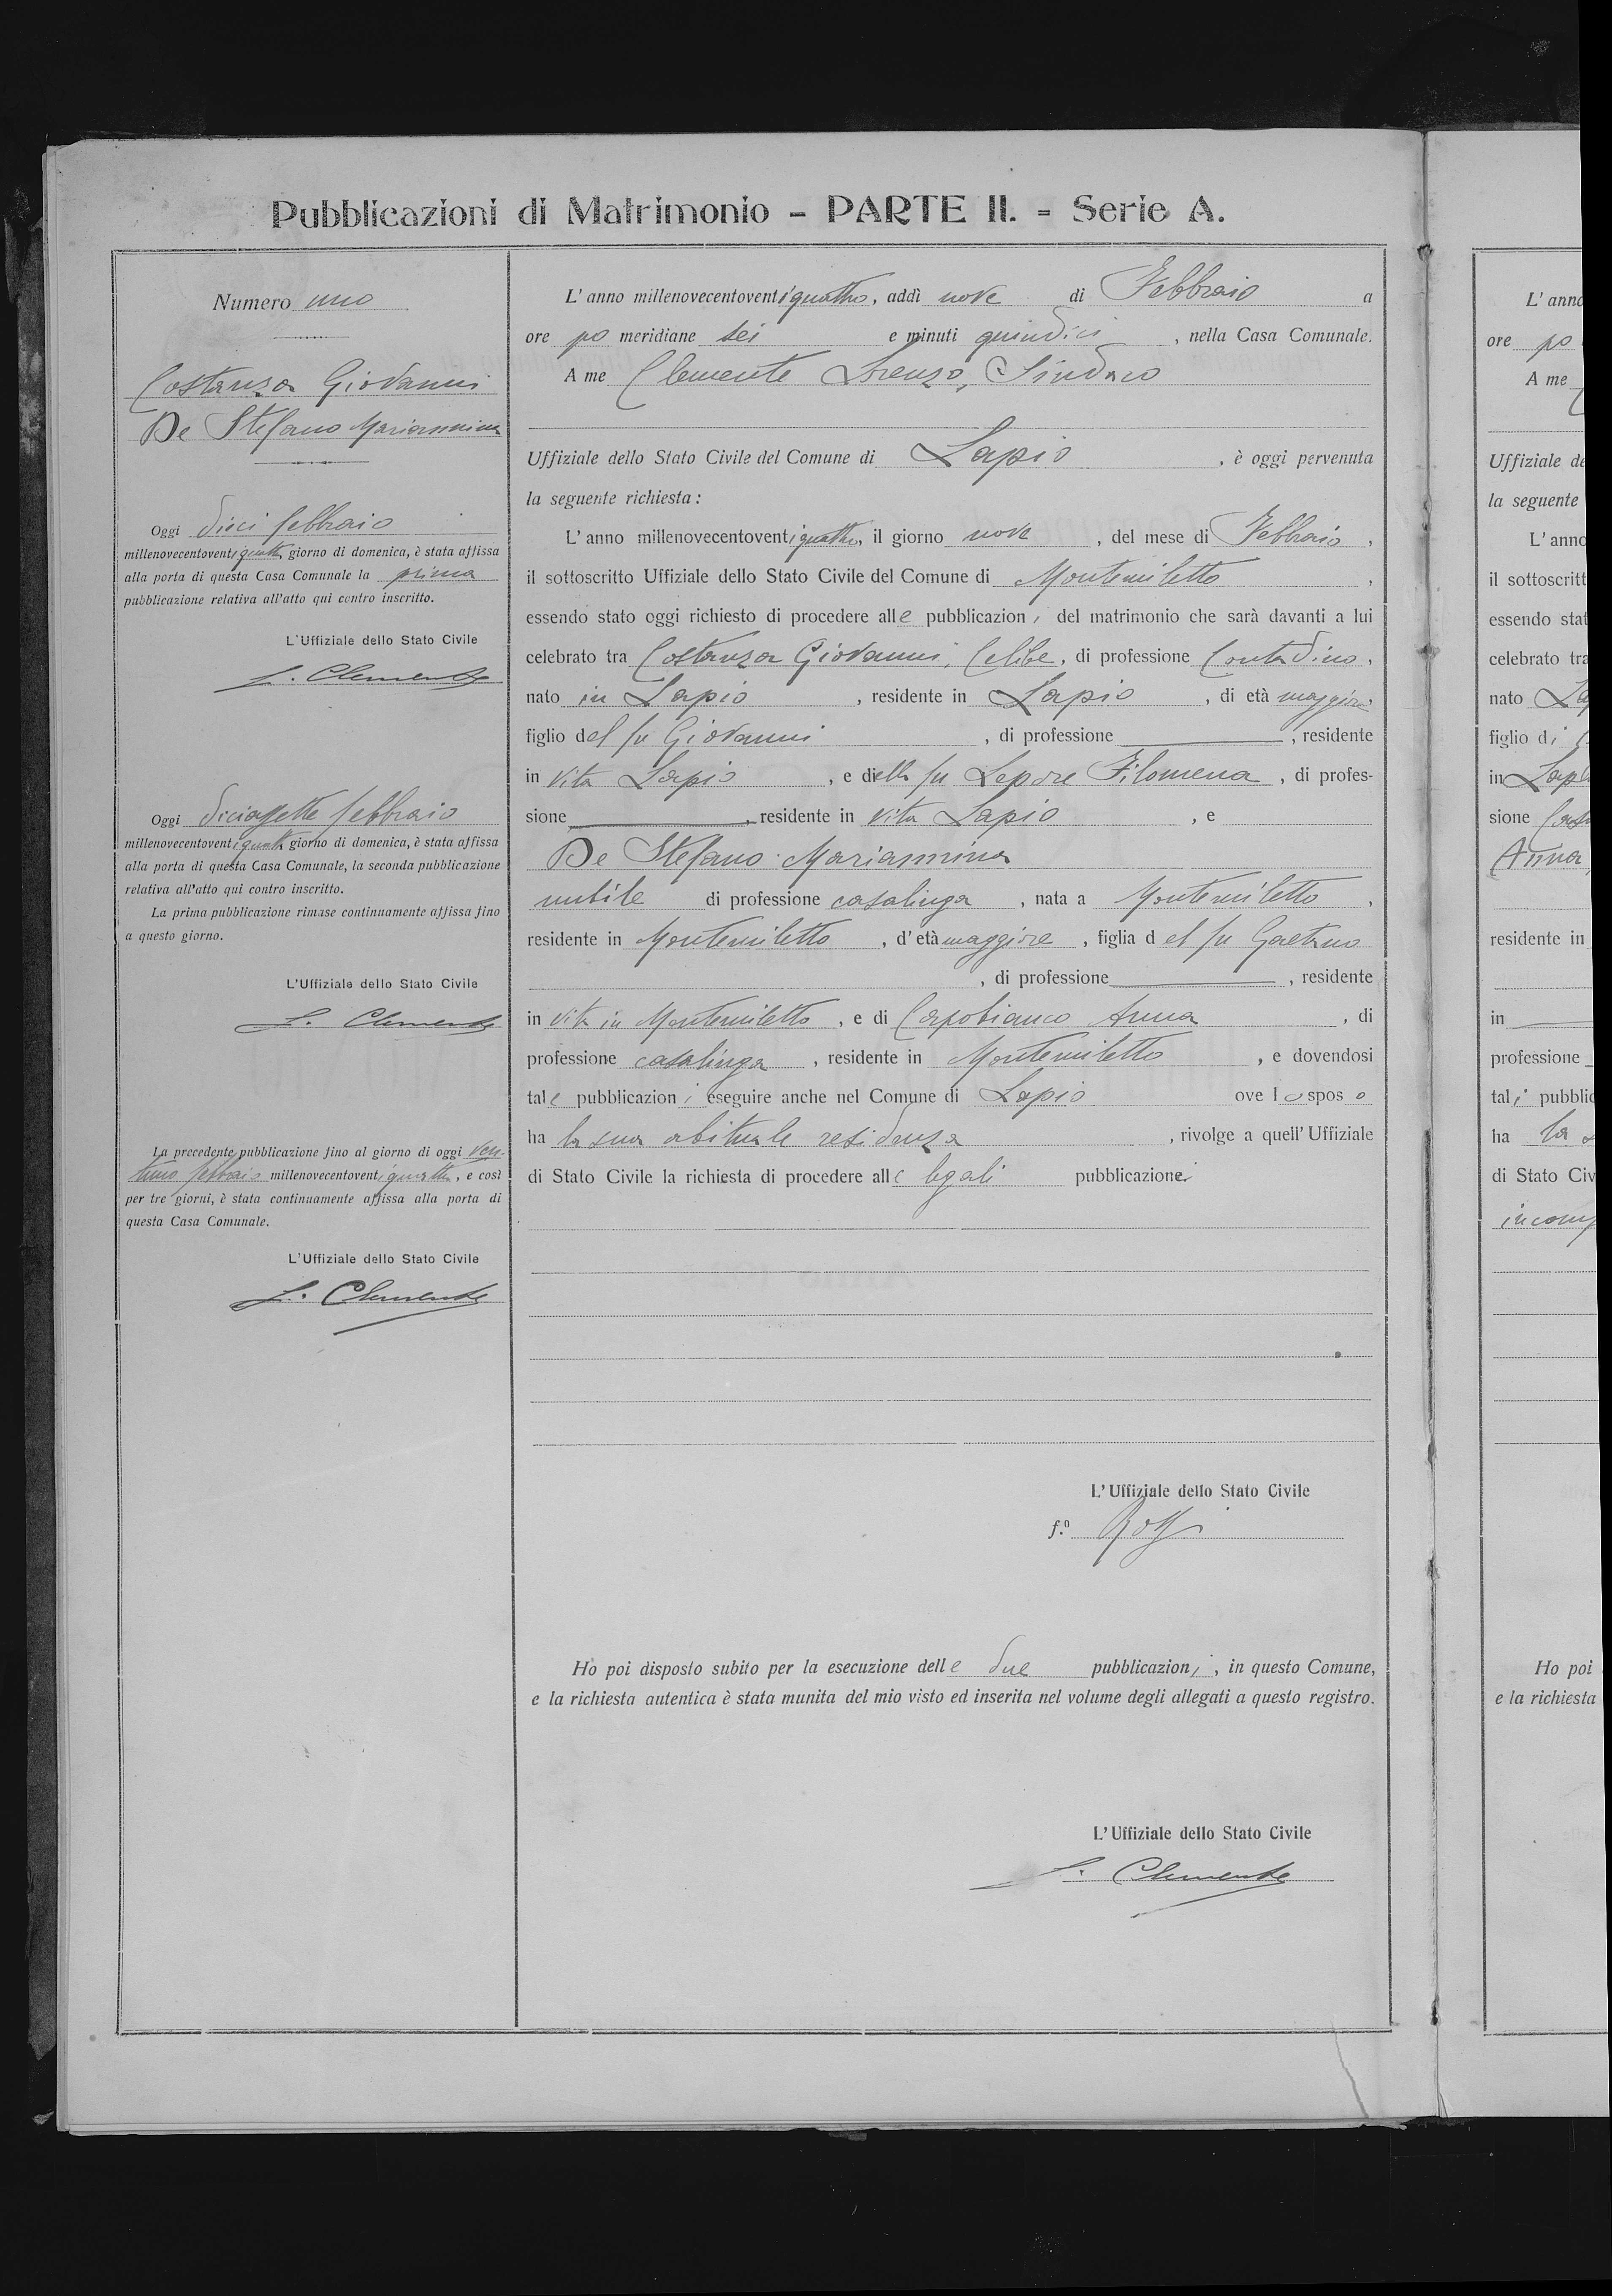 Pubblicazioni di Matrimonio - PARTE II. = Serie A.
Numero uno
Costanza Giovanni
De Stefano Mariannina
Oggi dieci febbraio
millenovecentoventiquattro giorno di domenica, è stata affissa
alla porta di questa Casa Comunale la prima
pubblicazione relativa all'atto qui contro inscritto.
L'Uffiziale dello Stato Civile
L. Clemente
Oggi diciassette febbraio
millenovecentoventiquattro giorno di domenica, è stata affissa
alla porta di questa Casa Comunale, la seconda pubblicazione
relativa all'atto qui contro inscritto.
La prima pubblicazione rimase continuamente affissa fino
a questo giorno.
L'Uffiziale dello Stato Civile
L. Clemente
La precedente pubblicazione fino al giorno di oggi ven-
tuno febbraio millenovecentoventiquattro, e così
per tre giorni, è stata continuamente affissa alla porta di
questa Casa Comunale.
L'Uffiziale dello Stato Civile
L. Clemente
L'anno millenovecentoventiquattro, addì nove di Febbraio a
ore po meridiane sei e minuti quindici, nella Casa Comunale.
A me Clemente Lorenzo, Sindaco
Uffiziale dello Stato Civile del Comune di Lapio, è oggi pervenuta
la seguente richiesta:
L'anno millenovecentoventiquattro, il giorno nove, del mese di Febbraio,
il sottoscritto Uffiziale dello Stato Civile del Comune di Montemiletto,
essendo stato oggi richiesto di procedere alle pubblicazioni del matrimonio che sarà davanti a lui
celebrato tra Costanza Giovanni, Celibe, di professione Contadino,
nato in Lapio, residente in Lapio, di età maggiore,
figlio del fu Giovanni, di professione, residente
in vita Lapio, e della fu Lepore Filomena, di profes-
sione, residente in vita Lapio, e
De Stefano Mariannina
nubile di professione casalinga, nata a Montemiletto,
residente in Montemiletto, d'età maggiore, figlia del fu Gaetano
, di professione, residente
in vita in Montemiletto, e di Capobianco Anna, di
professione casalinga, residente in Montemiletto, e dovendosi
tale pubblicazioni eseguire anche nel Comune di Lapio ove lo sposo
ha la sua abituale residenza, rivolge a quell'Uffiziale
di Stato Civile la richiesta di procedere alle legali pubblicazioni
L'Uffiziale dello Stato Civile
f.º Rossi
Ho poi disposto subito per la esecuzione delle due pubblicazioni, in questo Comune,
e la richiesta autentica è stata munita del mio visto ed inserita nel volume degli allegati a questo registro.
L'Uffiziale dello Stato Civile
L. Clemente
L'anno
ore po
A me
Uffiziale de
la seguente
L'anno
il sottoscritt
essendo stat
celebrato tra
nato La
figlio di
in Lapi
sione
Anna
residente in
in
professione
tali pubblic
ha la s
di Stato Civ
incomp
Ho poi
e la richiesta